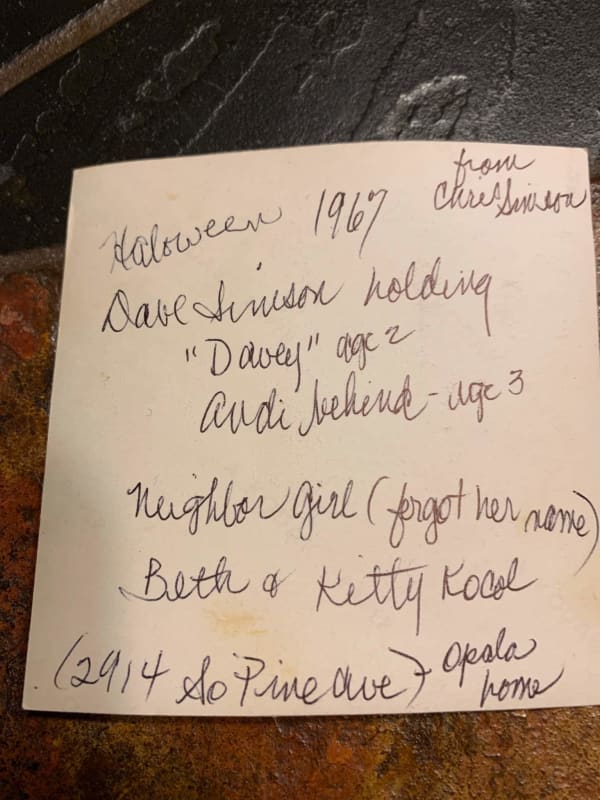 from
Chris Simson
Haloween 1967
Dave Simson holding
"Davey" age 2
Andi behind - age 3
Neighbor Girl (forgot her name)
Beth & Kitty Kocol
(2914 So Pine Ave) - Opala
home